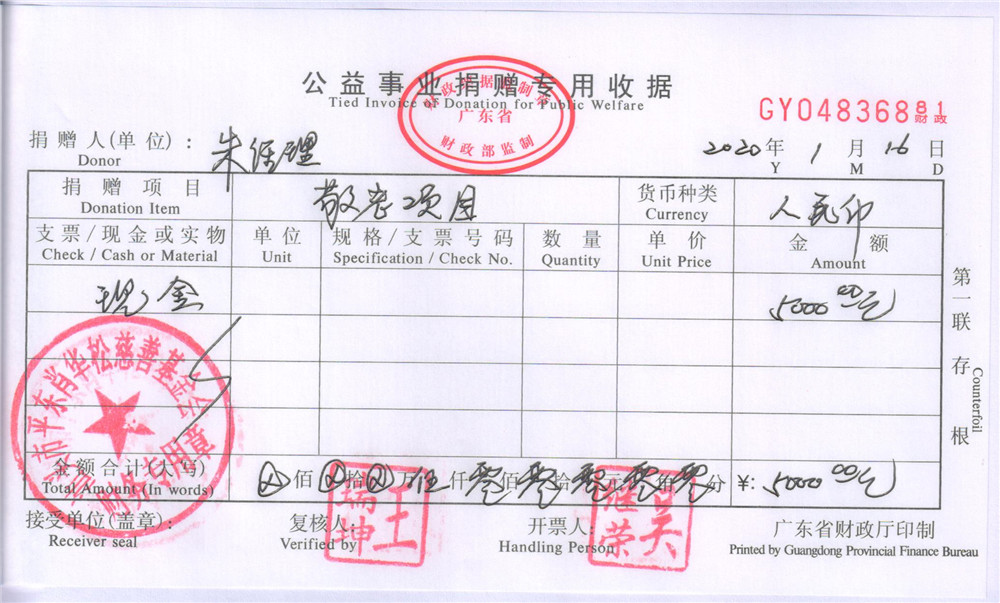 公益事业捐赠专用收据
Tied Invoice of Donation for Public Welfare
财政部监制
广东省
GY04836881
财政
捐赠人(单位): 朱经理
Donor
2020年1月16日
Y M D
捐赠项目 敬老项目 货币种类 人民币
Donation Item Currency
支票/现金或实物 单位 规格/支票号码 数量 单价 金额
Check / Cash or Material Unit Specification / Check No. Quantity Unit Price Amount
现金 5000.00元
金额合计(大写) 佰 拾 万 伍 仟 零 佰 零 拾 零 元 零 角 零 分 ¥: 5000.00元
Total Amount (In words)
接受单位(盖章): 复核人: 开票人: 广东省财政厅印制
Receiver seal Verified by Handling Person Printed by Guangdong Provincial Finance Bureau
第一联 存根
Counterfoil
平东肖华松慈善基金会
财务专用章
王瑞坤